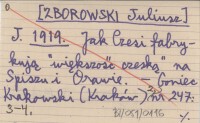 [ZBOROWSKI Juliusz]
J. 1919. Jak Czesi fabry-
kują "większość czeską" na
Spiszu i Orawie. – Goniec
Krakowski (Kraków) nr 247:
3-4.